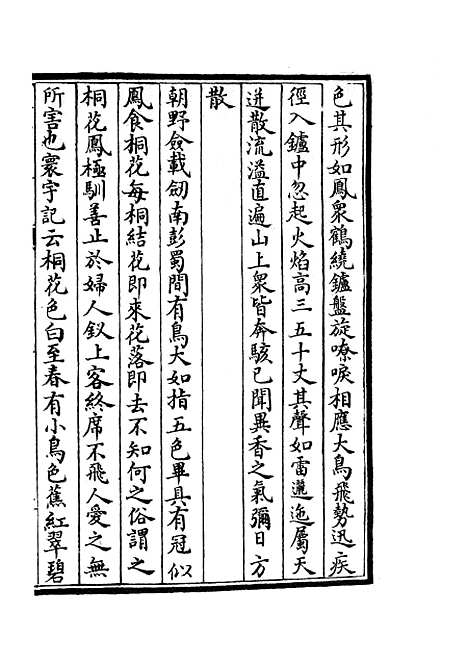 色其形如鳳衆鶴繞鑪盤旋嘹唳相應大鳥飛勢迅疾
徑入鑪中忽起火焰高三五十丈其聲如雷邐迤屬天
迸散流溢直遍山上衆皆奔駭已聞異香之氣彌日方
散
朝野僉載劒南彭蜀間有鳥大如指五色畢具有冠似
鳳食桐花每桐結花即來花落即去不知何之俗謂之
桐花鳳極馴善止於婦人釵上客終席不飛人愛之無
所害也寰宇記云桐花色白至春有小鳥色蕉紅翠碧